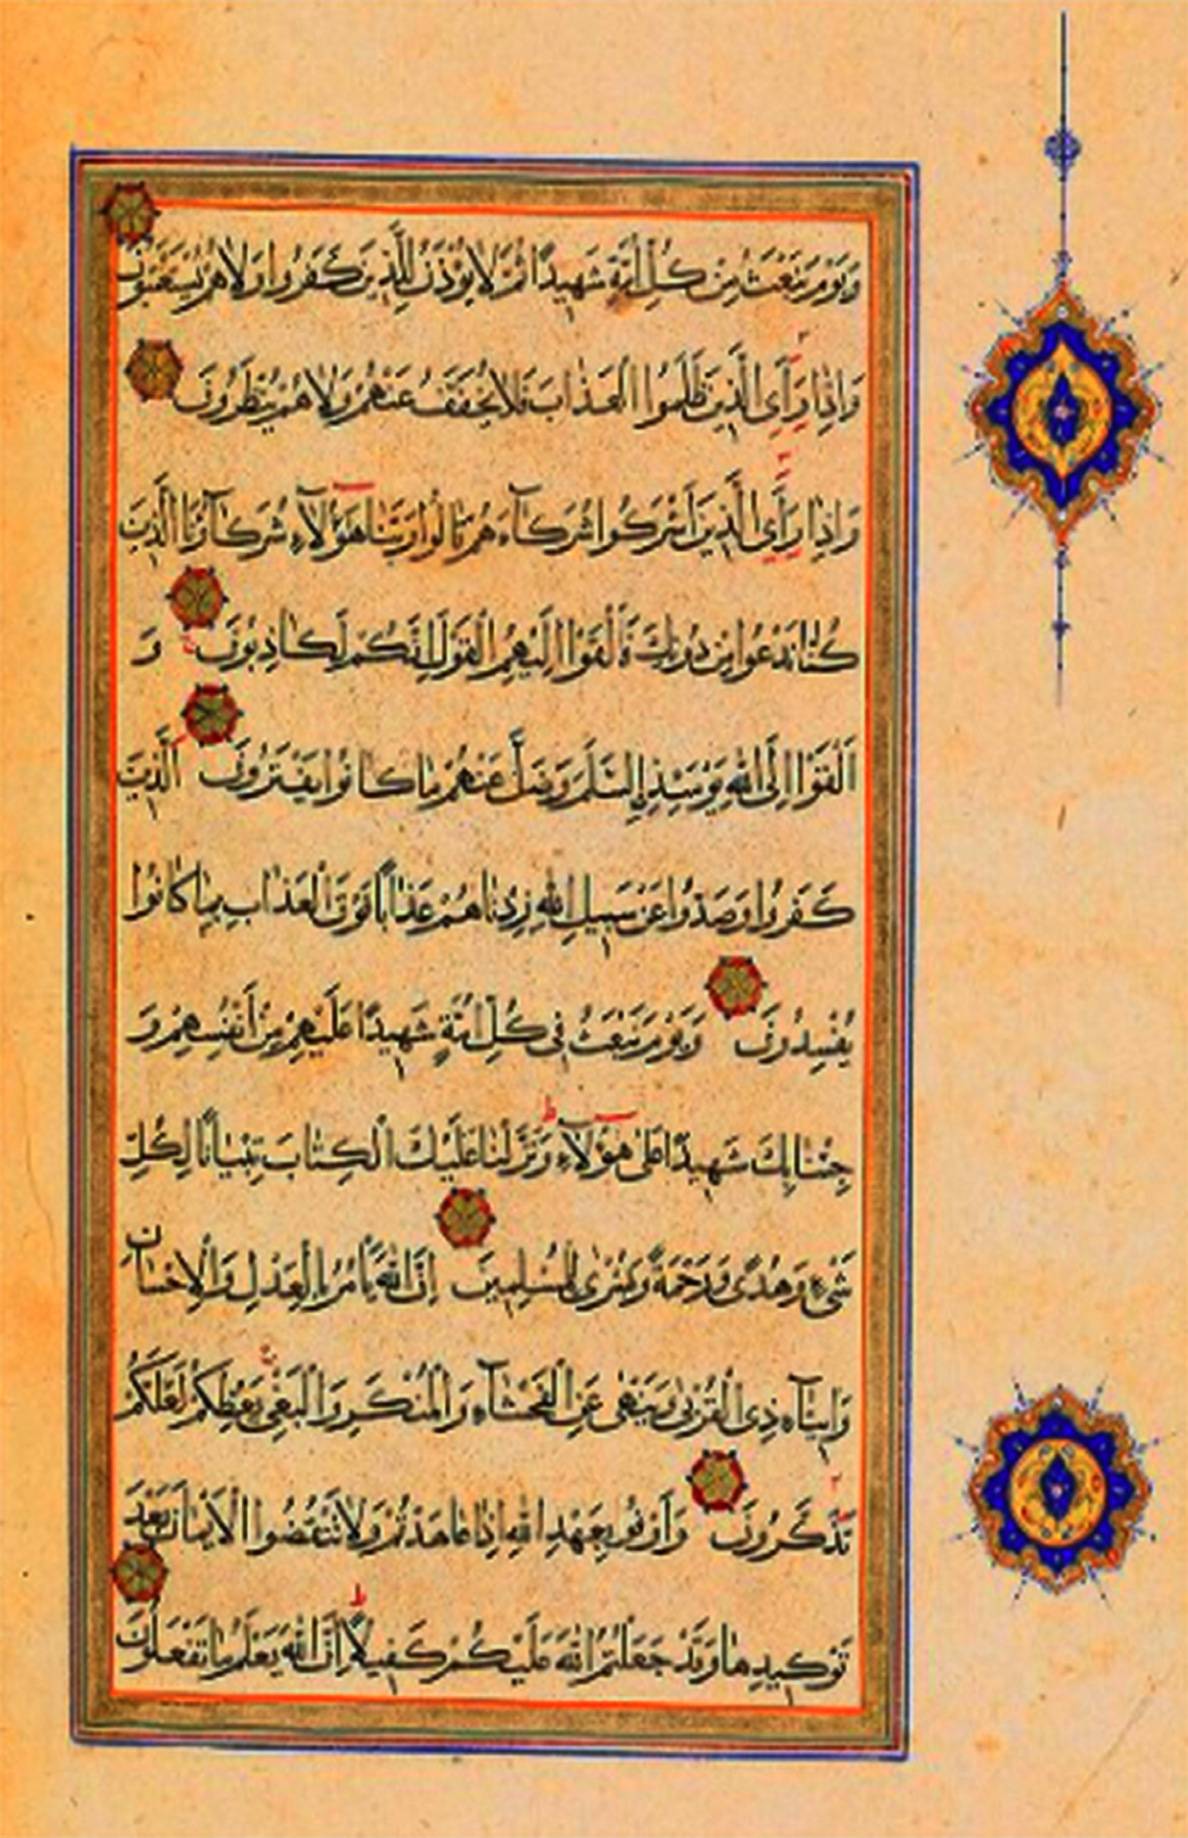 وَيَوْمَ نَبْعَثُ مِنْ كُلِّ أُمَّةٍ شَهِيدًا ثُمَّ لَا يُؤْذَنُ لِلَّذِينَ كَفَرُوا وَلَا هُمْ يُسْتَعْتَبُونَ
وَاِذَا رَأَى الَّذِينَ ظَلَمُوا الْعَذَابَ فَلَا يُخَفَّفُ عَنْهُمْ وَلَا هُمْ يُنْظَرُونَ
وَاِذَا رَأَى الَّذِينَ اَشْرَكُوا شُرَكَآءَهُمْ قَالُوا رَبَّنَا هٰٓؤُلَآءِ شُرَكَآؤُنَا الَّذِينَ
كُنَّا نَدْعُوا مِنْ دُونِكَ فَاَلْقَوْا اِلَيْهِمُ الْقَوْلَ اِنَّكُمْ لَكَاذِبُونَ وَ
اَلْقَوْا اِلَى اللّٰهِ يَوْمَئِذٍ السَّلَمَ وَضَلَّ عَنْهُمْ مَا كَانُوا يَفْتَرُونَ اَلَّذِينَ
كَفَرُوا وَصَدُّوا عَنْ سَبِيلِ اللّٰهِ زِدْنَاهُمْ عَذَابًا فَوْقَ الْعَذَابِ بِمَا كَانُوا
يُفْسِدُونَ وَيَوْمَ نَبْعَثُ فِى كُلِّ اُمَّةٍ شَهِيدًا عَلَيْهِمْ مِنْ اَنْفُسِهِمْ وَ
جِئْنَا بِكَ شَهِيدًا عَلٰى هٰٓؤُلَآءِ وَنَزَّلْنَا عَلَيْكَ الْكِتَابَ تِبْيَانًا لِكُلِّ
شَىْءٍ وَهُدًى وَرَحْمَةً وَبُشْرٰى لِلْمُسْلِمِينَ اِنَّ اللّٰهَ يَأْمُرُ بِالْعَدْلِ وَالْاِحْسَانِ
وَاِيتَآءِ ذِى الْقُرْبٰى وَيَنْهٰى عَنِ الْفَحْشَآءِ وَالْمُنْكَرِ وَالْبَغْىِ يَعِظُكُمْ لَعَلَّكُمْ
تَذَكَّرُونَ وَاَوْفُوا بِعَهْدِ اللّٰهِ اِذَا عَاهَدْتُمْ وَلَا تَنْقُضُوا الْاَيْمَانَ بَعْدَ
تَوْكِيدِهَا وَقَدْ جَعَلْتُمُ اللّٰهَ عَلَيْكُمْ كَفِيلًا اِنَّ اللّٰهَ يَعْلَمُ مَا تَفْعَلُونَ